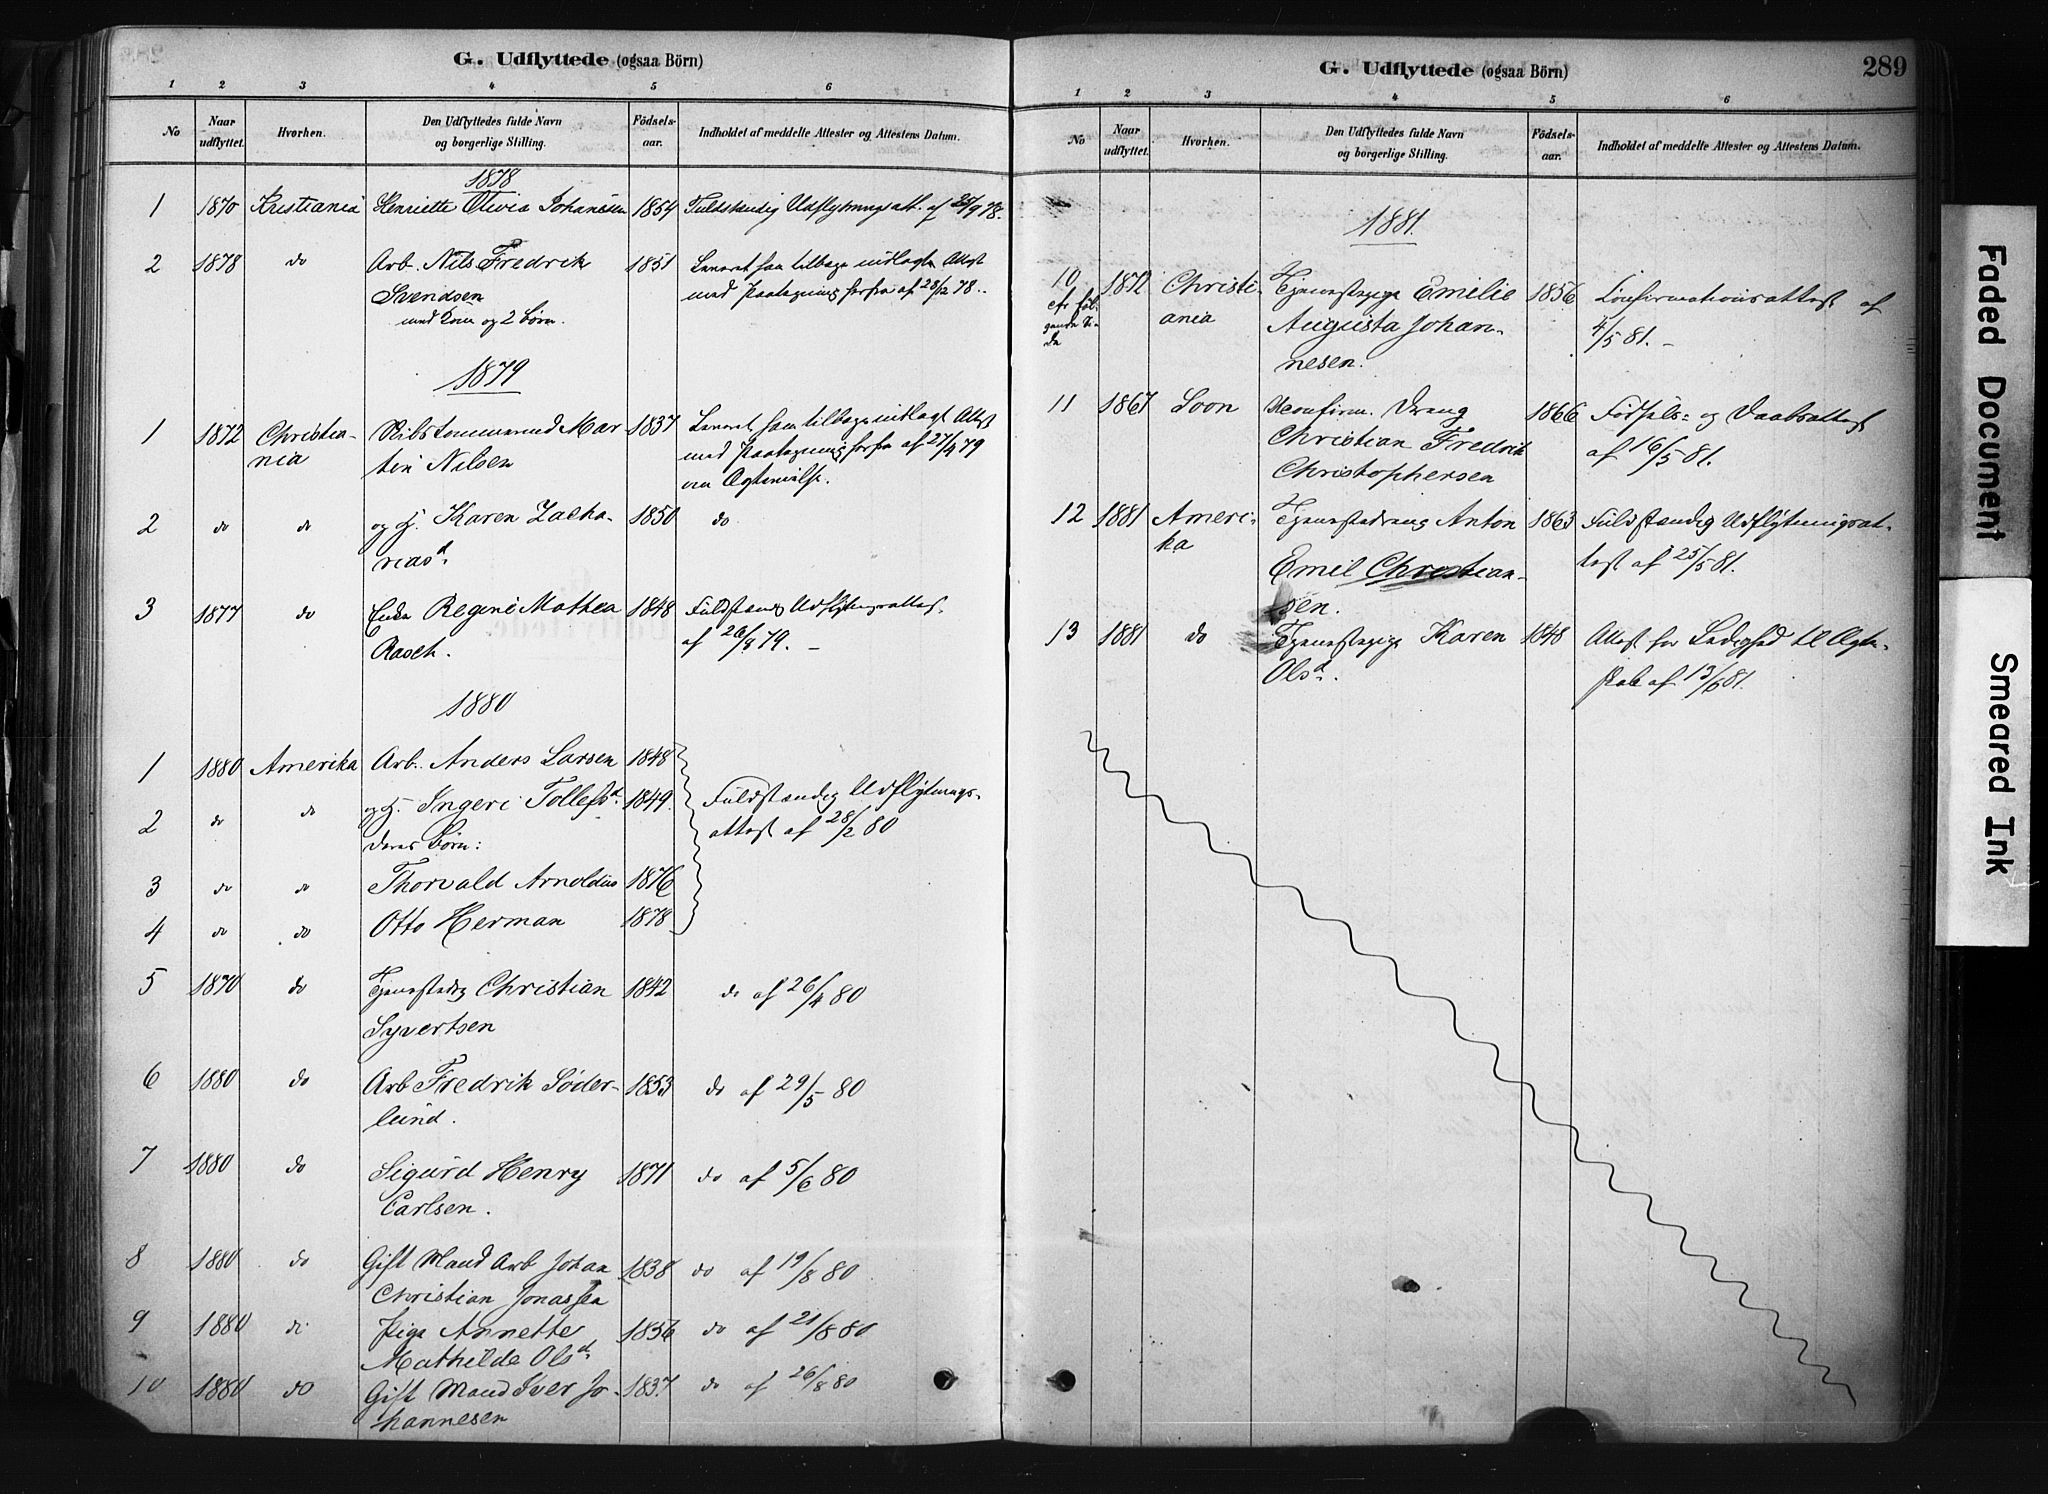 G. Udflyttede (ogsaa Börn)
1 2 3 4 5 6
No Naar udflyttet. Hvorhen. Den Udflyttedes fulde Navn og borgerlige Stilling. Födsels-aar. Indholdet af meddelte Attester og Attestens Datum.
1878
1 1870 Kristiania Henriette Olivia Johansen 1854 Fuldstændig Udflytningsatt. af 21/9 78.
2 1878 do Arb. Nils Fredrik 1851 Leveret ham tilbage indlagte Attest
Svendsen med Paategning herfra af 28/12 78.
med Kone og 2 börn.
1879
1 1872 Christia- Skibstømmermand Mar- 1837 Leveret ham tilbage indlagt Attest
nia tin Nilsen med Paategning herfra af 27/4 79
om Ægtevielse.
2 do do og H. Karen Zacha- 1850 do
riasd.
3 1877 do Enke Regine Mathea 1848 Fuldstændig Udflytningsattest
Rasch. af 26/8 79. –
1880
1 1880 Amerika Arb. Anders Larsen 1848
2 do do og H. Ingeri Tollefsd. 1849. Fuldstændig Udflytnings-
deres Börn: attest af 28/2 80
3 do do Thorvald Arnoldus 1876
4 do do Otto Herman 1878
5 1870 do Tjenestedrg Christian 1842 do af 26/4 80
Syvertsen
6 1880 do Arb Fredrik Söder- 1853 do af 29/5 80
lund.
7 1880 do Sigurd Henry 1871 do af 5/6 80
Carlsen.
8 1880 do Gift Mand Arb Johan 1838 do af 19/8 80
Christian Jonassen
9 1880 do Pige Annette 1856 do af 21/8 80
Mathilde Olsd.
10 1880 do Gift Mand Iver Jo- 1837 do af 26/8 80
hannesen
G. Udflyttede (ogsaa Börn) 289
1 2 3 4 5 6
No Naar udflyttet. Hvorhen. Den Udflyttedes fulde Navn og borgerlige Stilling. Födsels-aar. Indholdet af meddelte Attester og Attestens Datum.
1881.
10 1872 Christi- Tjenestepige Emilie 1856 Confirmationsattest af
cfr föl- ania Augusta Johan- 4/5 81. –
gende Si-
de nesen.
11 1867 Soon Ukonfirm. Dreng 1866 Födsels- og Daabsattest
Christian Fredrik af 16/5 81.
Christophersen
12 1881 Ameri- Tjenestedreng Anton 1863 Fuldstændig Udflytningsat-
ka Emil Christian- test af 25/5 81.
sen.
13 1881 do Tjenestepige Karen 1848 Attest for Ledighed til Ægte-
Olsd. skab af 13/6 81.
Faded Document
Smeared Ink